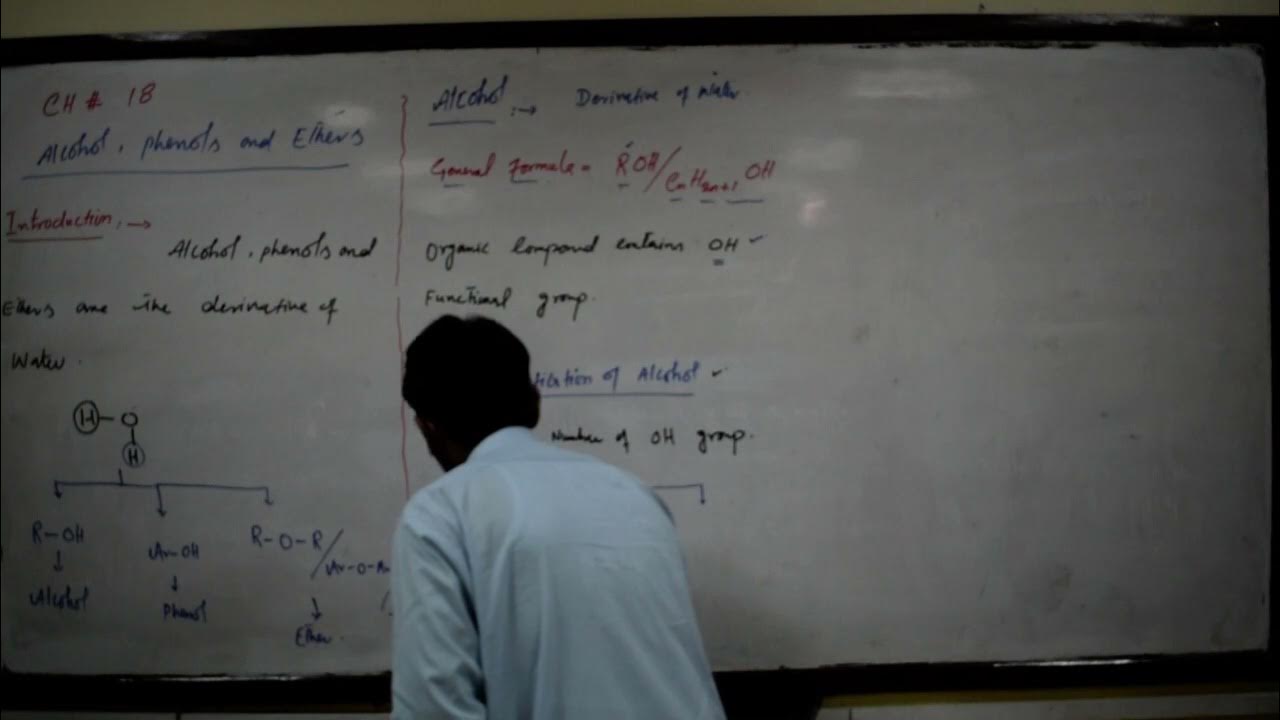 CH # 18
Alcohol, phenols and Ethers
Introduction :→
Alcohol, phenols and
Ethers are the derivative of
Water.
H-O
H
R-OH
Ar-OH
R-O-R/
Ar-O-Ar
Alcohol
Phenol
Ether.
Alcohol :→ Derivative of water
General Formula = ROH/CnH2n+1 OH
Organic Compound contains OH
Functional group.
of Alcohol
Number of OH group.